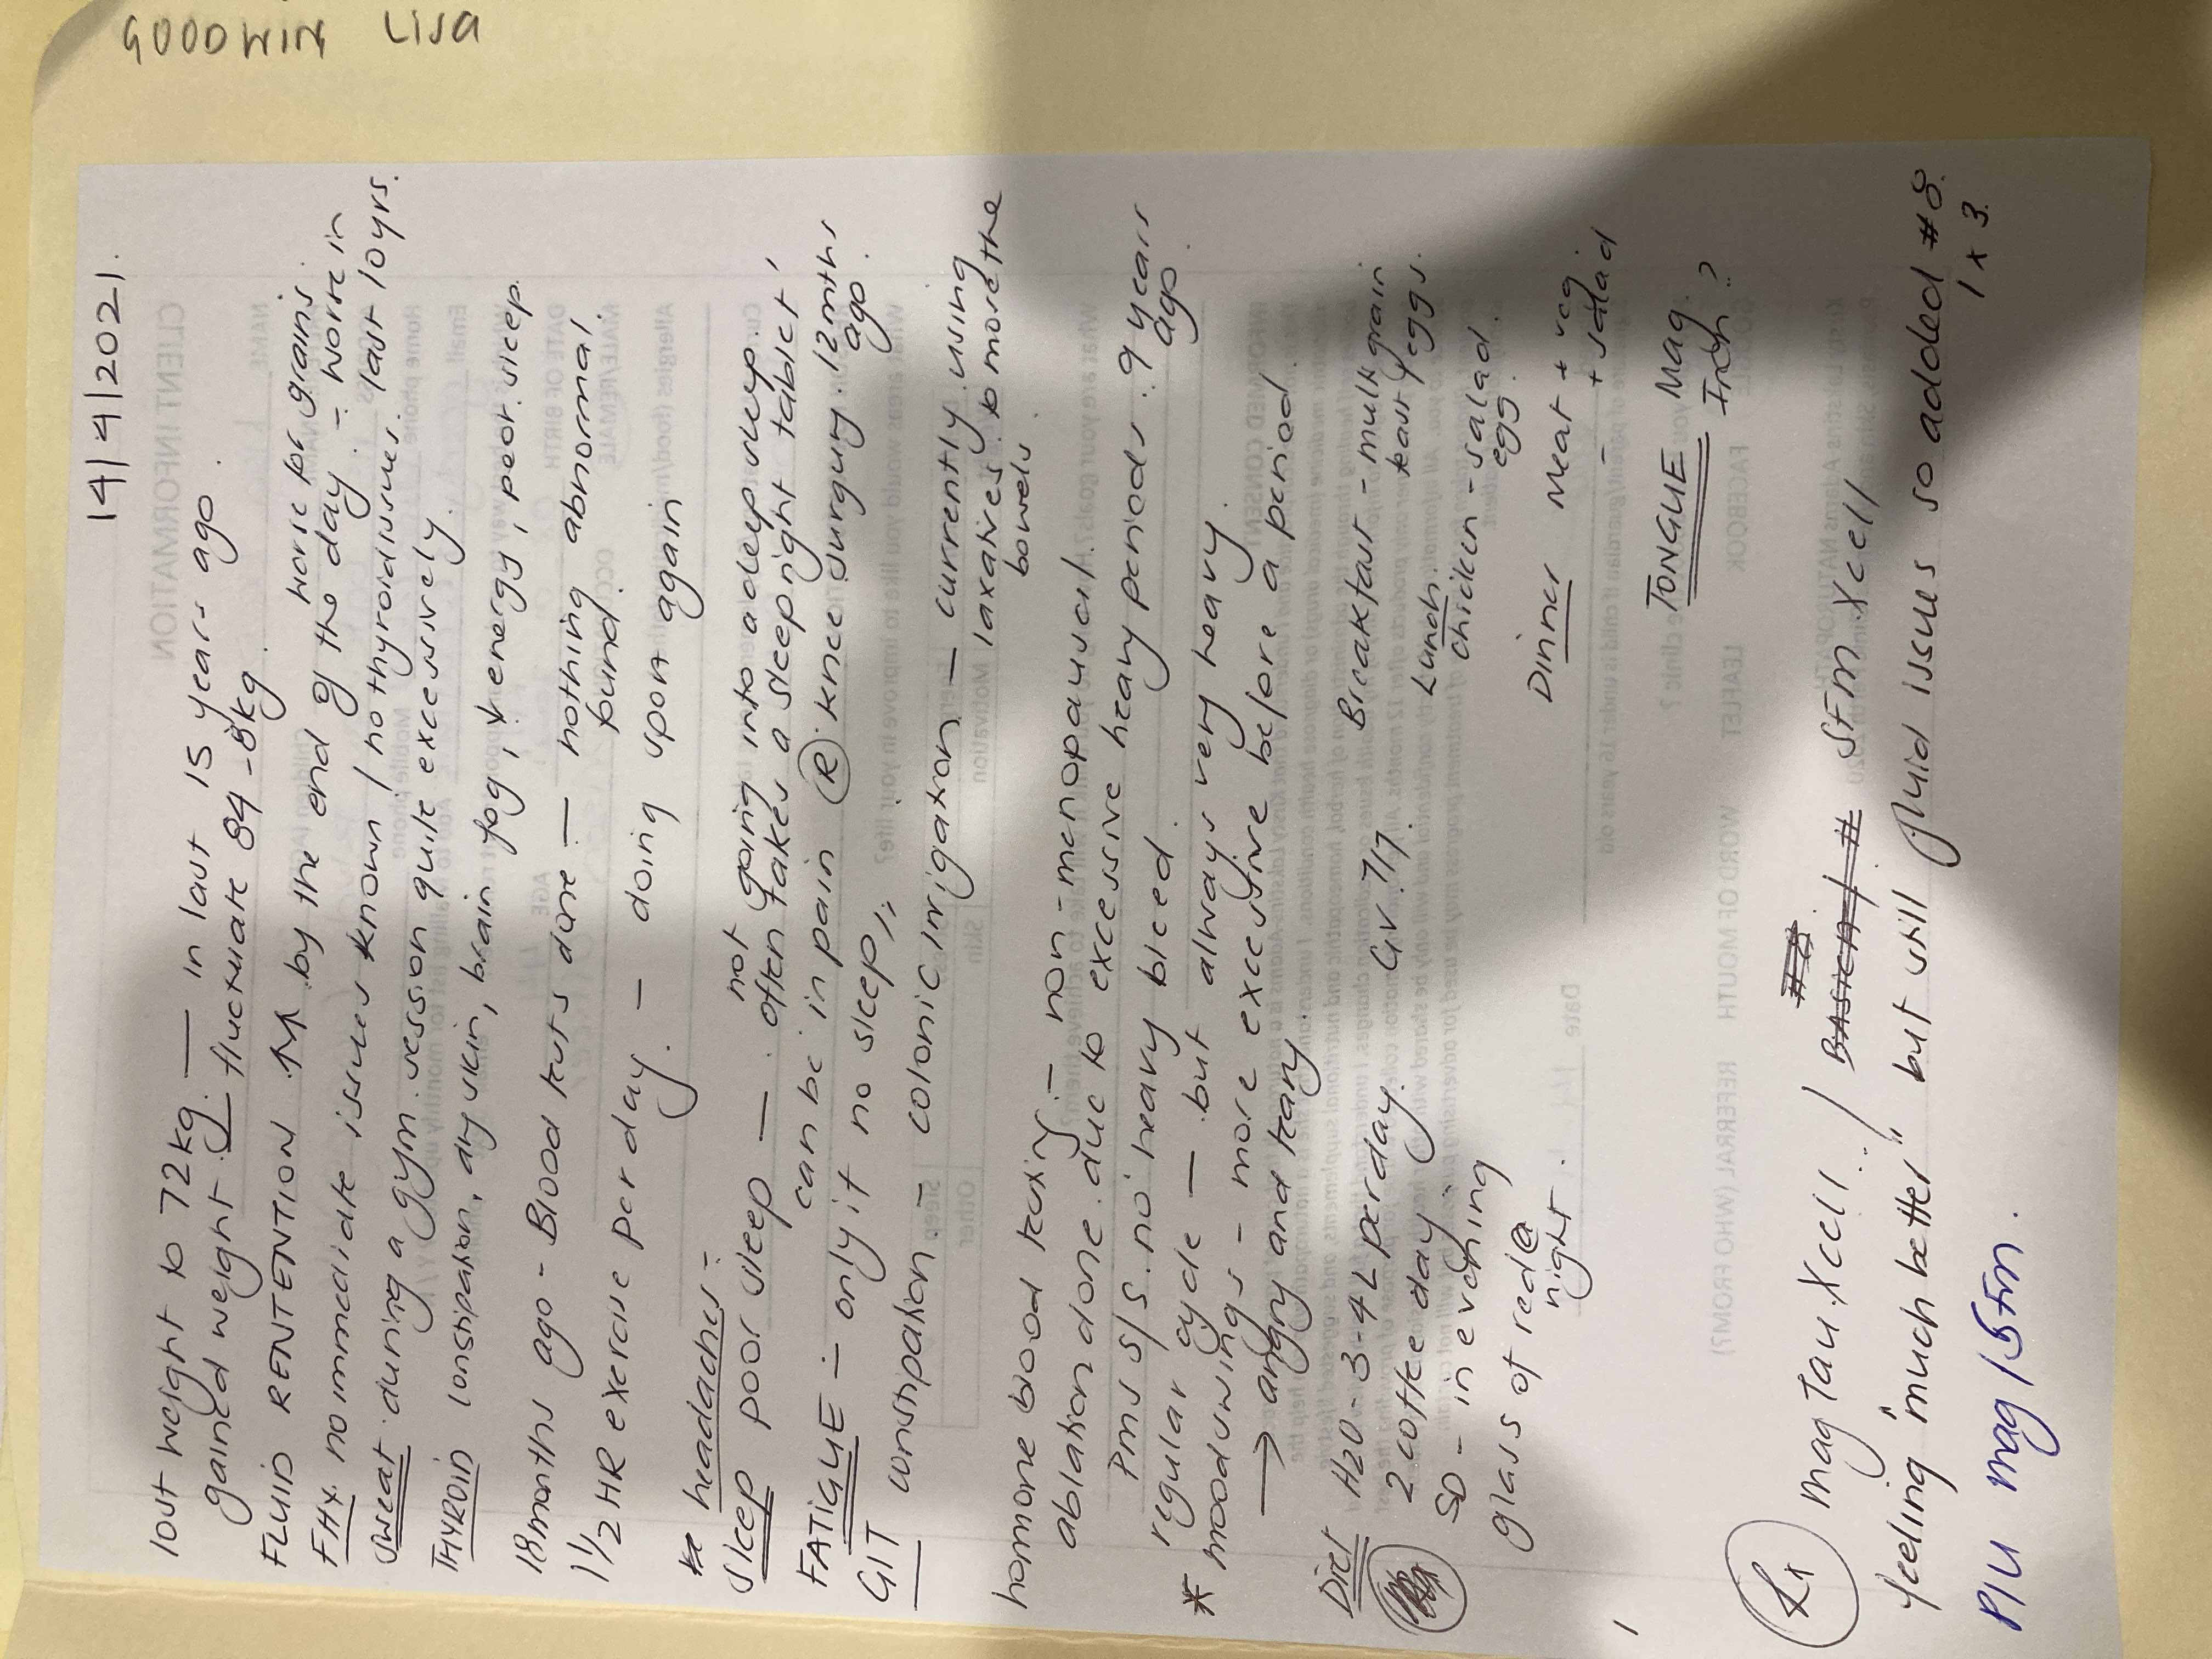 GOODWIN LISA
14/4/2021.
lost weight to 72kg. — in last 15 years ago
gained weight. fluctuate 84-8kg.
FLUID RENTENTION ↑↑ by the end of the day - worse in
worse for grains.
FHx. no immediate issues known / no thyroid issues. last 10yrs.
Sweat during a gym session quite excessively.
THYROID constipation, dry skin, brain fog, energy, poor sleep.
18 months ago - Blood tests done — nothing abnormal
found.
1 1/2 HR exercise per day. — doing sport again
headaches -
Sleep poor sleep — not going into a deep sleep.
often takes a sleep night tablet,
can be in pain (R) knee surgury. 12mths
ago.
FATIGUE - only if no sleep,,
GIT constipation - colonic irrigation — currently using
laxatives to move the
bowels.
hormone blood texing - non-menopausal.
ablation done due to excessive heavy periods. 9 years
ago.
Pms s/s no heavy bleed
regular cycle — but always very heavy.
* moodswings - more excessive before a period.
→ angry and teary.
Diet H20 - 3-4L per day. GV. 7/7. Breakfast - multigrain
toast / eggs.
2 coffee day.
Lunch
chicken - salad
egg.
SD - in evening
glass of red @
night.
Dinner Meat + veg
+ salad
TONGUE Mag
Iron?
Rx mag Tau.Xcell. / SFM. Xcell
feeling "much better" but still fluid issues so added #8.
1 x 3.
P/U mag / SFM.